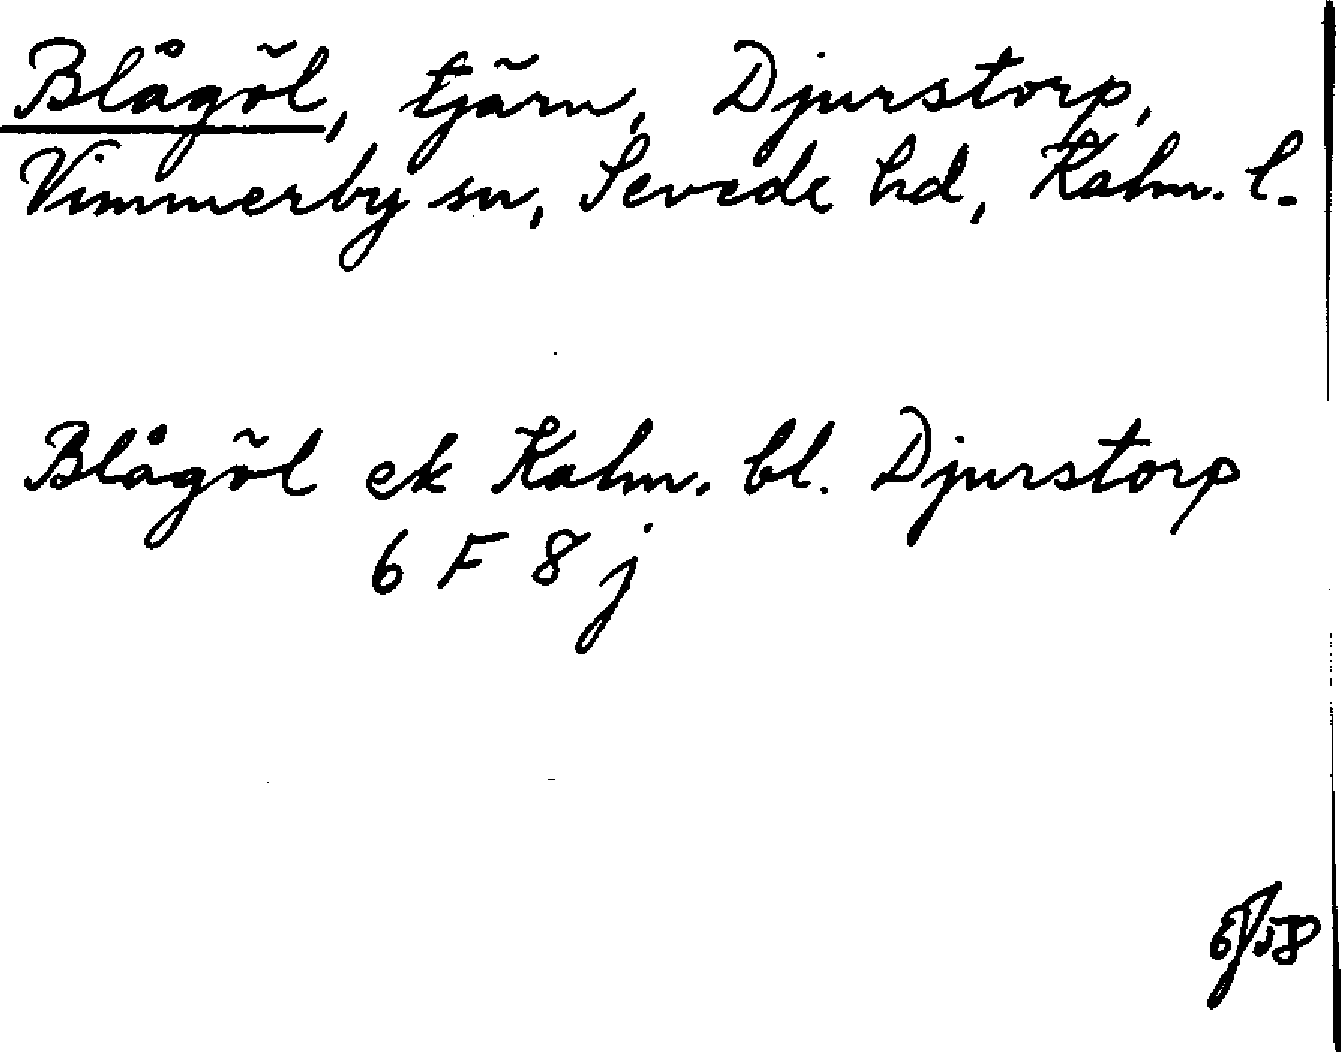 Blågöl, tjärn, Djurstorp,
Vimmerby sn, Sevede hd, Kalm. l.
Blågöl ek Kalm. bl. Djurstorp
6 F 8 j